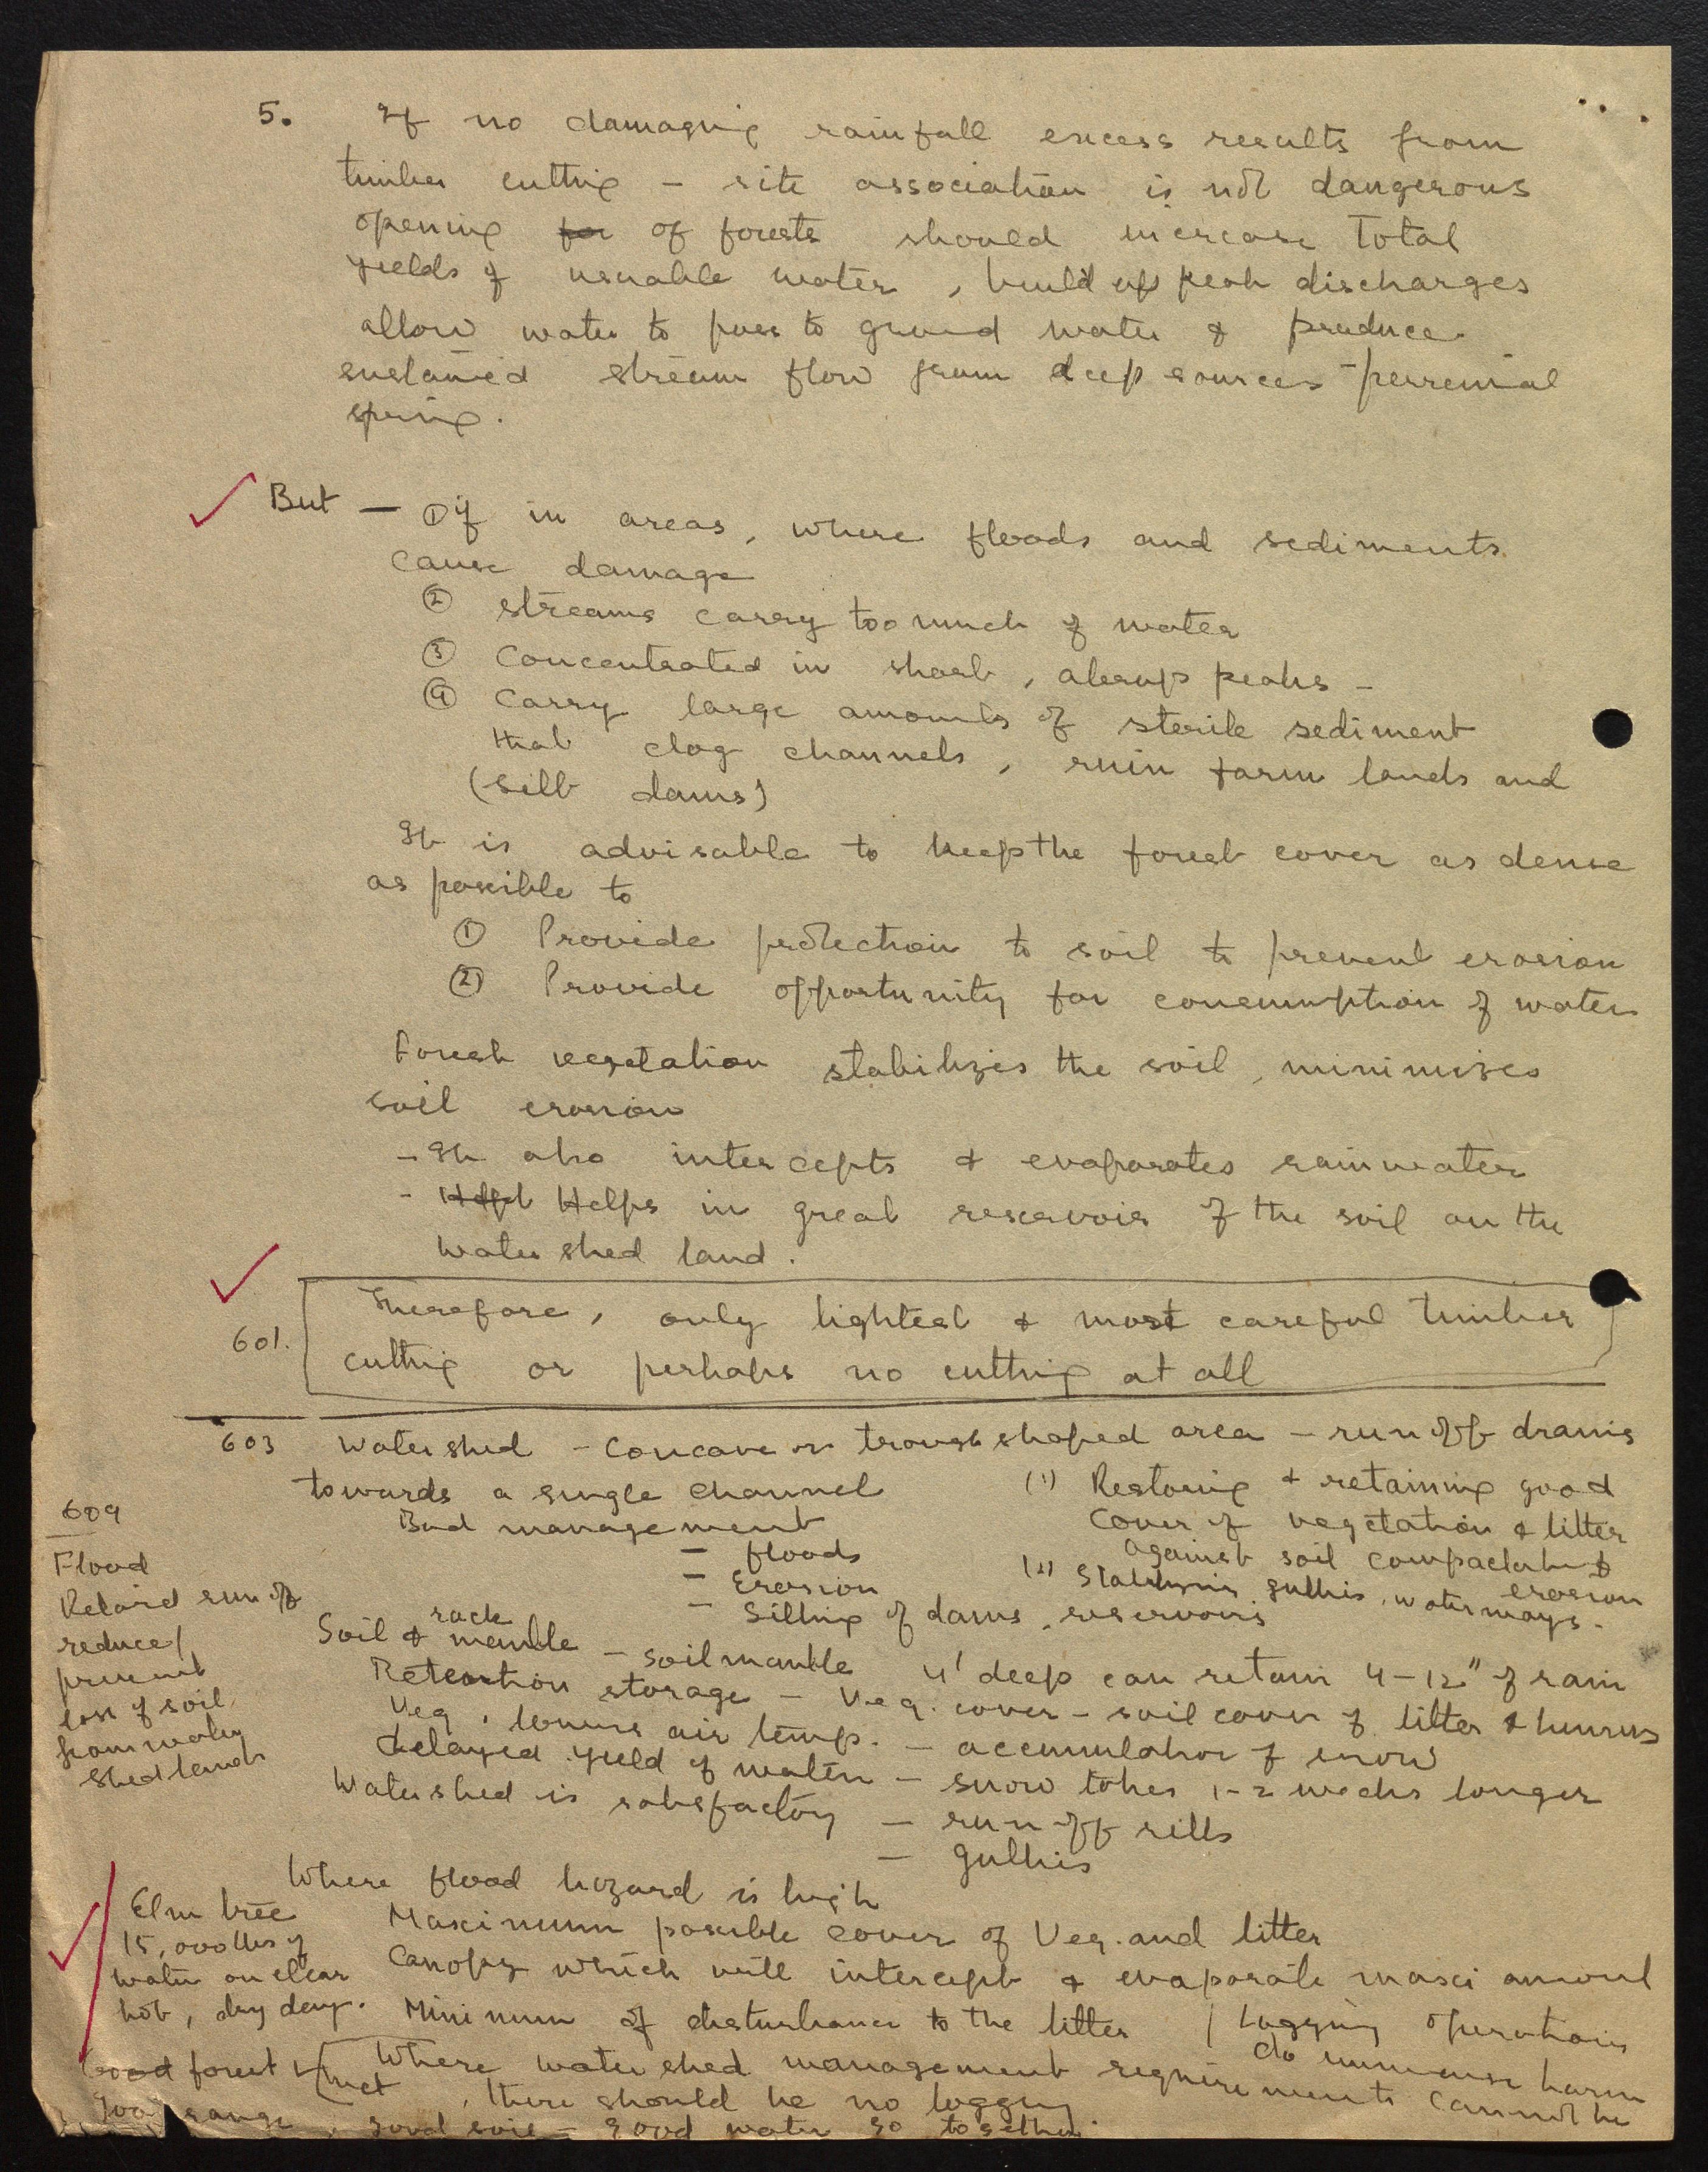 5. If no damaging rainfall excess results from
timber cutting – site association is not dangerous
opening for of forests should increase total
yields of usuable water, build up peak discharges
allow water to pass to ground water & produce
sustained stream flow from deep sources – perrenial
spring.
But — ① if in areas, where floods and sediments
cause damage
② streams carry too much of water
③ Concentrated in short, abrup peaks –
④ Carry large amounts of sterile sediment
that clog channels, ruin farm lands and
(silt dams)
It is advisable to keep the forest cover as dense
as possible to
① Provide protection to soil to prevent erosion
② Provide opportunity for consumption of water
Forest vegetation stabilizes the soil, minimizes
soil erosion
– It also intercepts & evaporates rainwater
– Helps in great reservoir of the soil on the
water shed land.
Therefore, only lightest & most careful timber
601. cutting or perhaps no cutting at all
603 Watershed – Concave or trough shaped area – runoff drains
towards a single channel
Bad management
– floods
– Erosion
– Silting of dams, reservoirs
(1) Restoring & retaining good
cover of vegetation & litter
against soil compactation &
erosion
(2) Stabilizing gullies, waterways.
609
Flood
Retard run off
reduce/
prevent
loss of soil
from water
shed lands
Soil & rock mantle – soil mantle 4' deep can retain 4–12" of rain
Retention storage – Veg. cover – soil cover of litter & humus
Veg. lowers air temp. – accumulation of snow
delayed yield of water – snow takes 1–2 weeks longer
Watershed is satisfactory – run-off rills
– gullies
Where flood hazard is high
Maximum possible cover of Veg. and litter
Canopy which will intercept & evaporate maxi amount
Minimum of disturbance to the litter / Logging operations
do immense harm
Elm tree
15,000 lbs of
water on clear
hot, dry day.
Where water shed management requirements cannot be
met, there should be no logging.
Good forest
good range, good soil – good water go together.